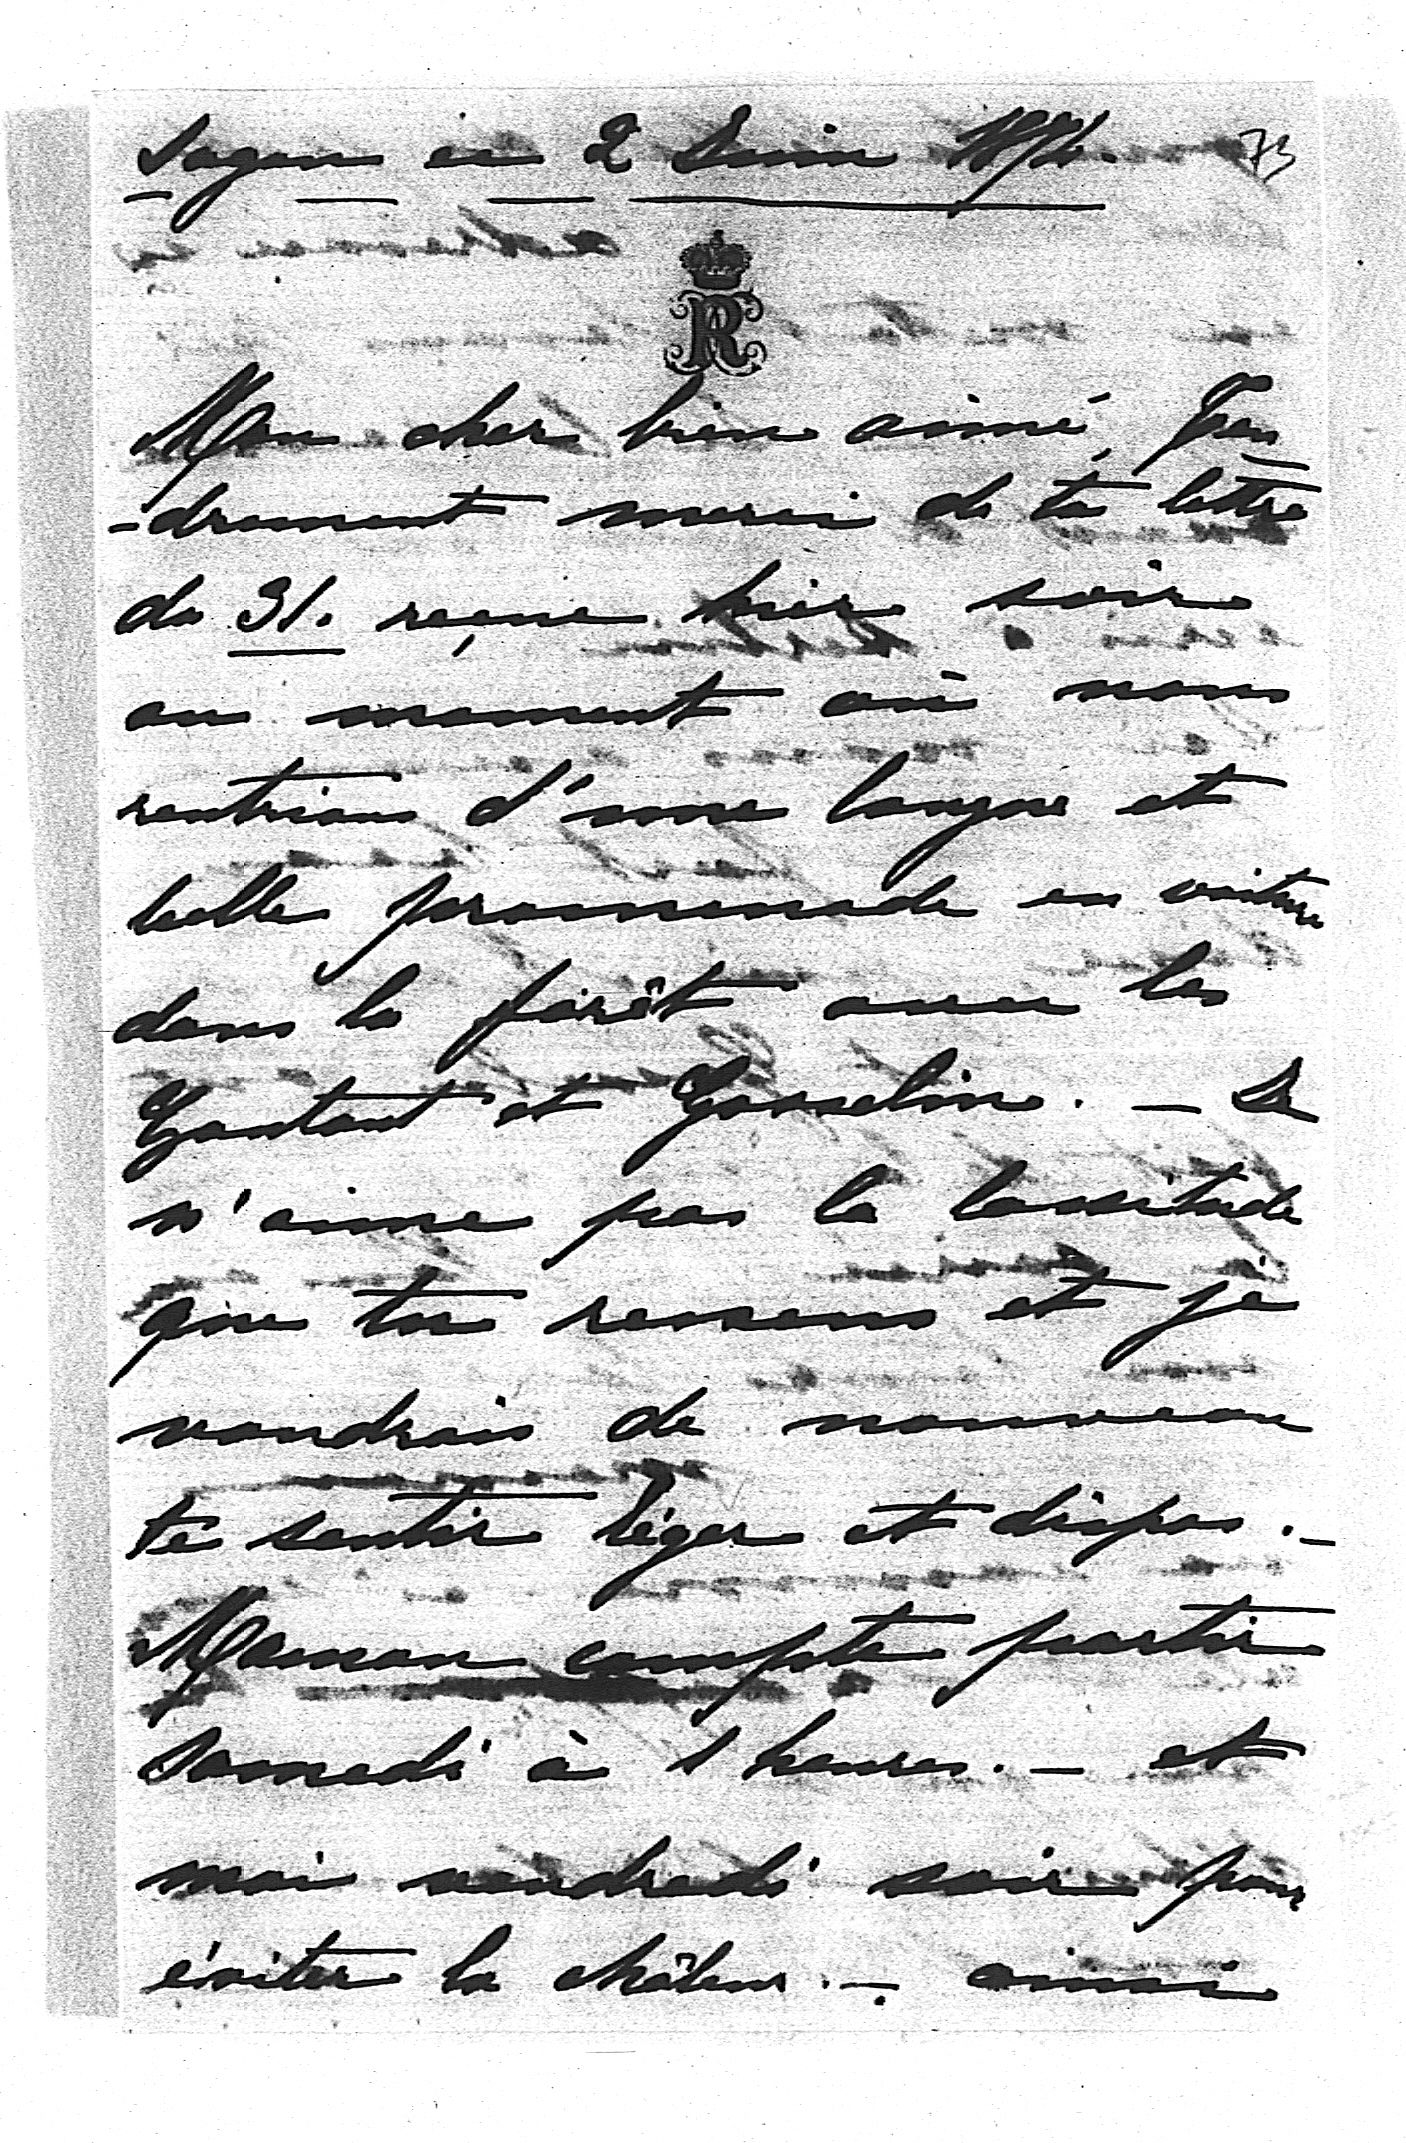 Sagan ce 2 Juin
73
R
Mon cher bien aimé, Ten
-drement merci de ta lettre
du 31. reçue hier soir
au moment où nous
rentrions d'une longue et
belle promenade en voiture
dans la forêt avec les
Gontaut et Gosselin. - Je
n'aime pas la lassitude
que tu ressens et je
voudrais de nouveau
te sentir léger et dispos. -
Maman compte partir
Samedi à 1 heures. - et
moi vendredi soir pour
éviter la châleur. - ainsi